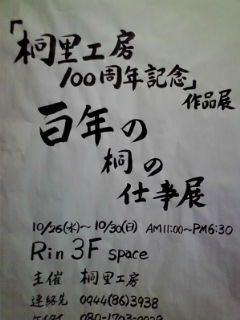 「桐里工房
100周年記念」
作品展
百年の
桐の
仕事展
10/26(水)～10/30(日) AM11:00～PM6:30
Rin 3F space
主催 桐里工房
連絡先 0944(86)3938